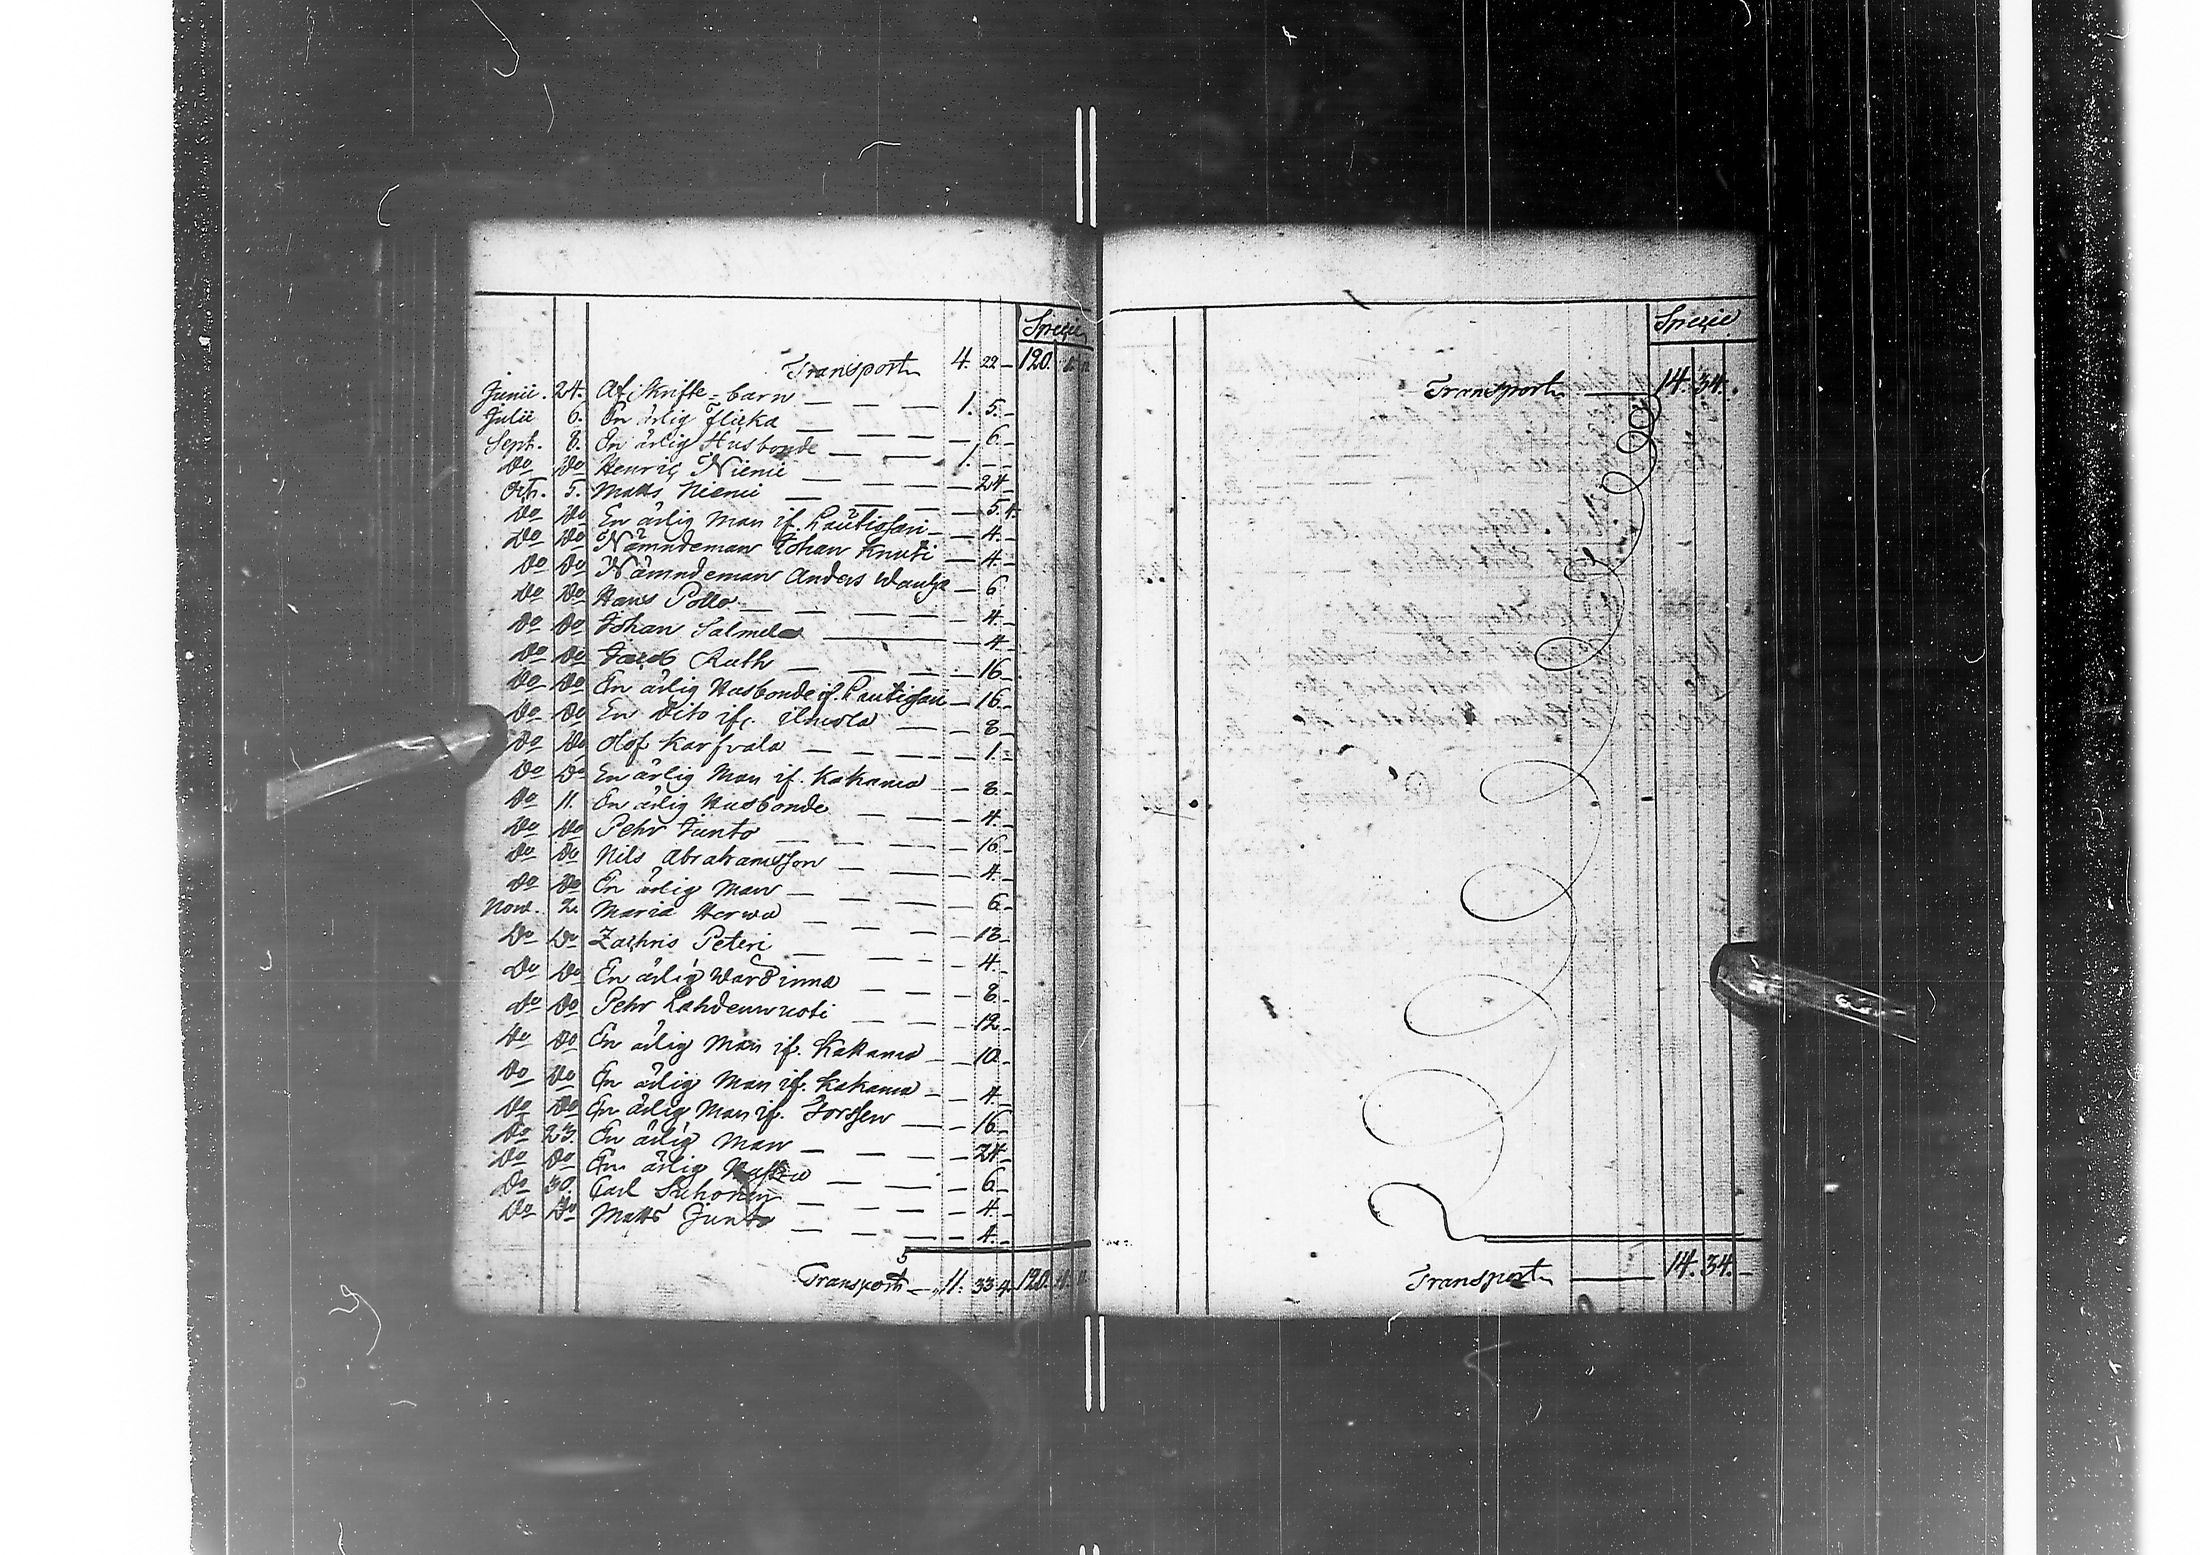 Specie
Transport 4. 22 — 120.
Junii. 24. Af Skrifte-barn — — — 1. 5. —
Julii 6. En ärlig Flicka — — — — 6 —
Sept. 8. En ärlig Husbonde — — 1. — —
Do Do Henric Niemi — — — 24 —
Oct. 5. Matts Niemi — — — 5. 4.
Do Do En ärlig Man if. Lautiosari — — 4. —
Do Do Nämndeman Johan Knuti — 4. —
Do Do Nämndeman Anders — 6
Do Do Hans Pello — — — — 4. —
Do Do Johan Salmela — — 4. —
Do Do Jacob Ruth — — — 16 —
Do Do En ärlig Husbonde if. Lautiosari — 16 —
Do Do En Dito if. — — 8 —
Do Do Olof Karfvala — — — 1. —
Do Do En ärlig Man if. Kakama — — 8. —
Do 11. En ärlig Husbonde — — — 4. —
Do Do Pehr Junto — — — — 16. —
Do Do Nils Abrahamsson — — — 4. —
Do Do En ärlig Man — — — — 6. —
Nov. 2. Maria Herva — — — — 13 —
Do Do Zachris Peteri — — — — 4. —
Do Do En ärlig Wärdinna — — — 8. —
Do Do Pehr — — — 12 —
Do Do En ärlig Man if. Kakama — — 10 —
Do Do En ärlig Man if. Kakama — — 4. —
Do Do En ärlig Man if. — — 16 —
Do 23. En ärlig Man — — — 24 —
Do Do En ärlig — — — 6 —
Do 30. Carl — — — 4. —
Do Do Matts Junto — — — — 4. —
5
Transport — 11. 33 4. 120.
Specie
Transport — 14. 34.
Transport — 14. 34. —